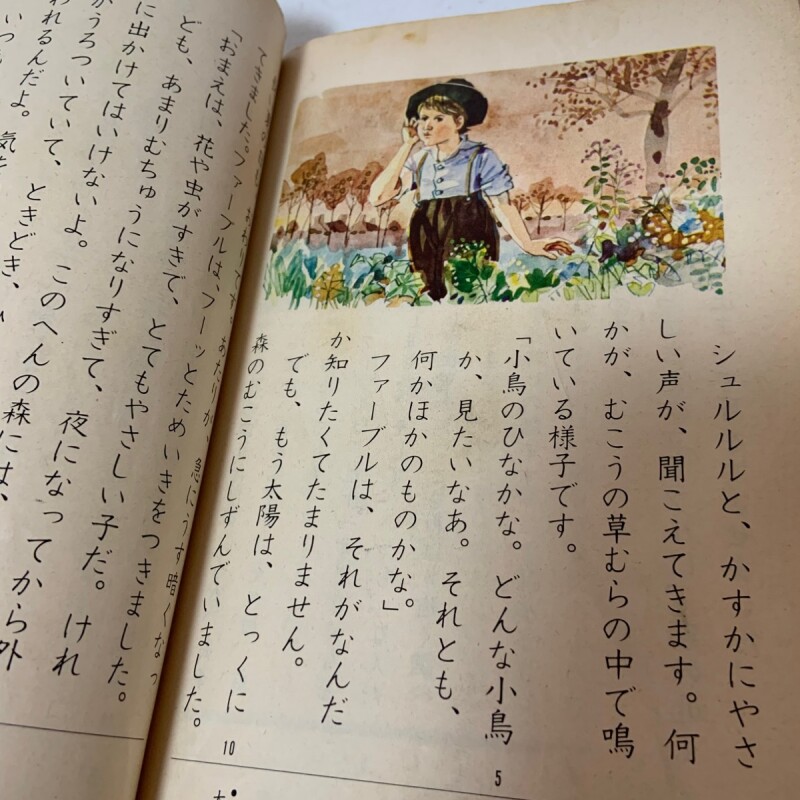 シュルルルと、かすかにやさ
しい声が、聞こえてきます。何
かが、むこうの草むらの中で鳴
いている様子です。
「小鳥のひなかな。どんな小鳥
か、見たいなあ。それとも、
何かほかのものかな。」
ファーブルは、それがなんだ
か知りたくてたまりません。
でも、もう太陽は、とっくに
森のむこうにしずんでいました。
5
10
あたりが、急にうす暗くなっ
てきました。ファーブルは、フーッとためいきをつきました。
「おまえは、花や虫がすきで、とてもやさしい子だ。けれ
ども、あまりむちゅうになりすぎて、夜になってから外
に出かけてはいけないよ。このへんの森には、
がうろついていて、ときどき、
われるんだよ。気を
いつ